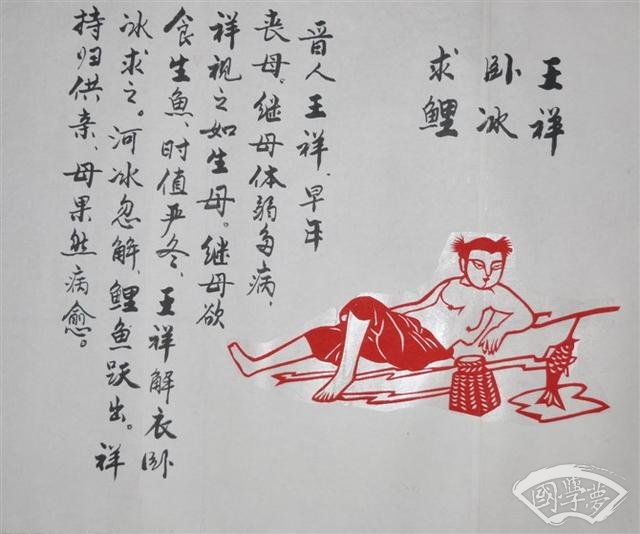 王祥
卧冰
求鲤
晋人王祥，早年
丧母。继母体弱多病，
祥视之如生母。继母欲
食生魚，时值严冬，王祥解衣卧
冰求之。河冰忽解，鲤鱼跃出。祥
持归供亲，母果然病愈。
國學夢